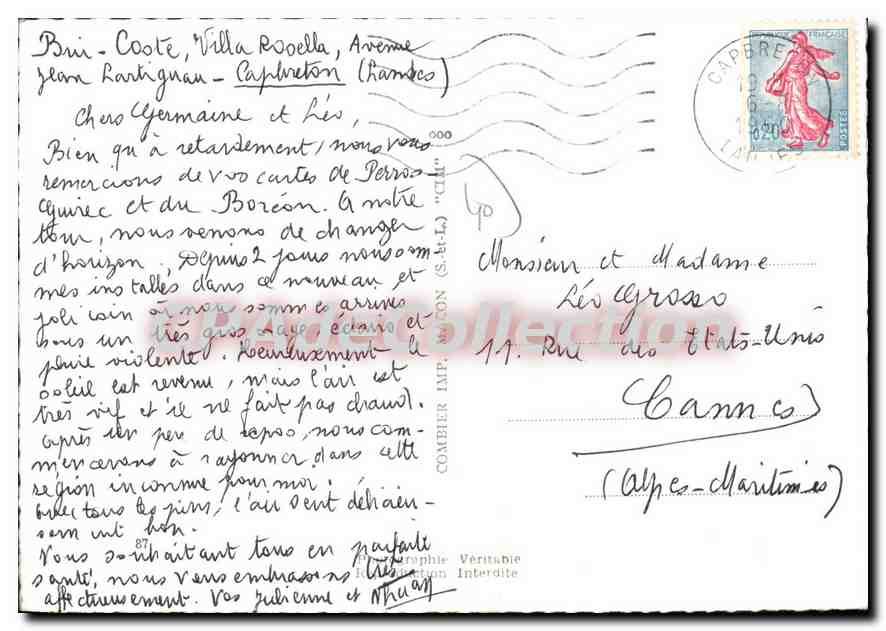 Brui-Coste, Villa Rosella, Avenue
Jean Lartigau - Capbreton (Landes)
Chers Germaine et Léo,
Bien qu'à retardement, nous vous
remercions de vos cartes de Perros-
Guirec et du Boréon. A notre
tour, nous venons de changer
d'horizon. Depuis 2 jours nous som-
mes installés dans ce nouveau et
joli coin où nous sommes arrivés
sous un très gros orage, éclairs et
pluie violente. Heureusement le
soleil est revenu, mais l'air est
très vif et il ne fait pas chaud.
Après un peu de repos, nous com-
mencerons à rayonner dans cette
région inconnue pour moi.
Avec tous les pins, l'air sent délicieu-
sement bon.
Vous souhaitant tous en parfaite
santé, nous vous embrassons très
affectueusement. Vos Julienne et
87
COMBIER IMP. MACON (S.-et-L.) "CIM"
Photographie Véritable
Reproduction Interdite
40
CAPBRETON
LANDES
REPUBLIQUE FRANÇAISE
0,20
POSTES
Monsieur et Madame
Léo Grosso
11. Rue des Etats-Unis
Cannes
(Alpes-Maritimes)
CPAdeCollection